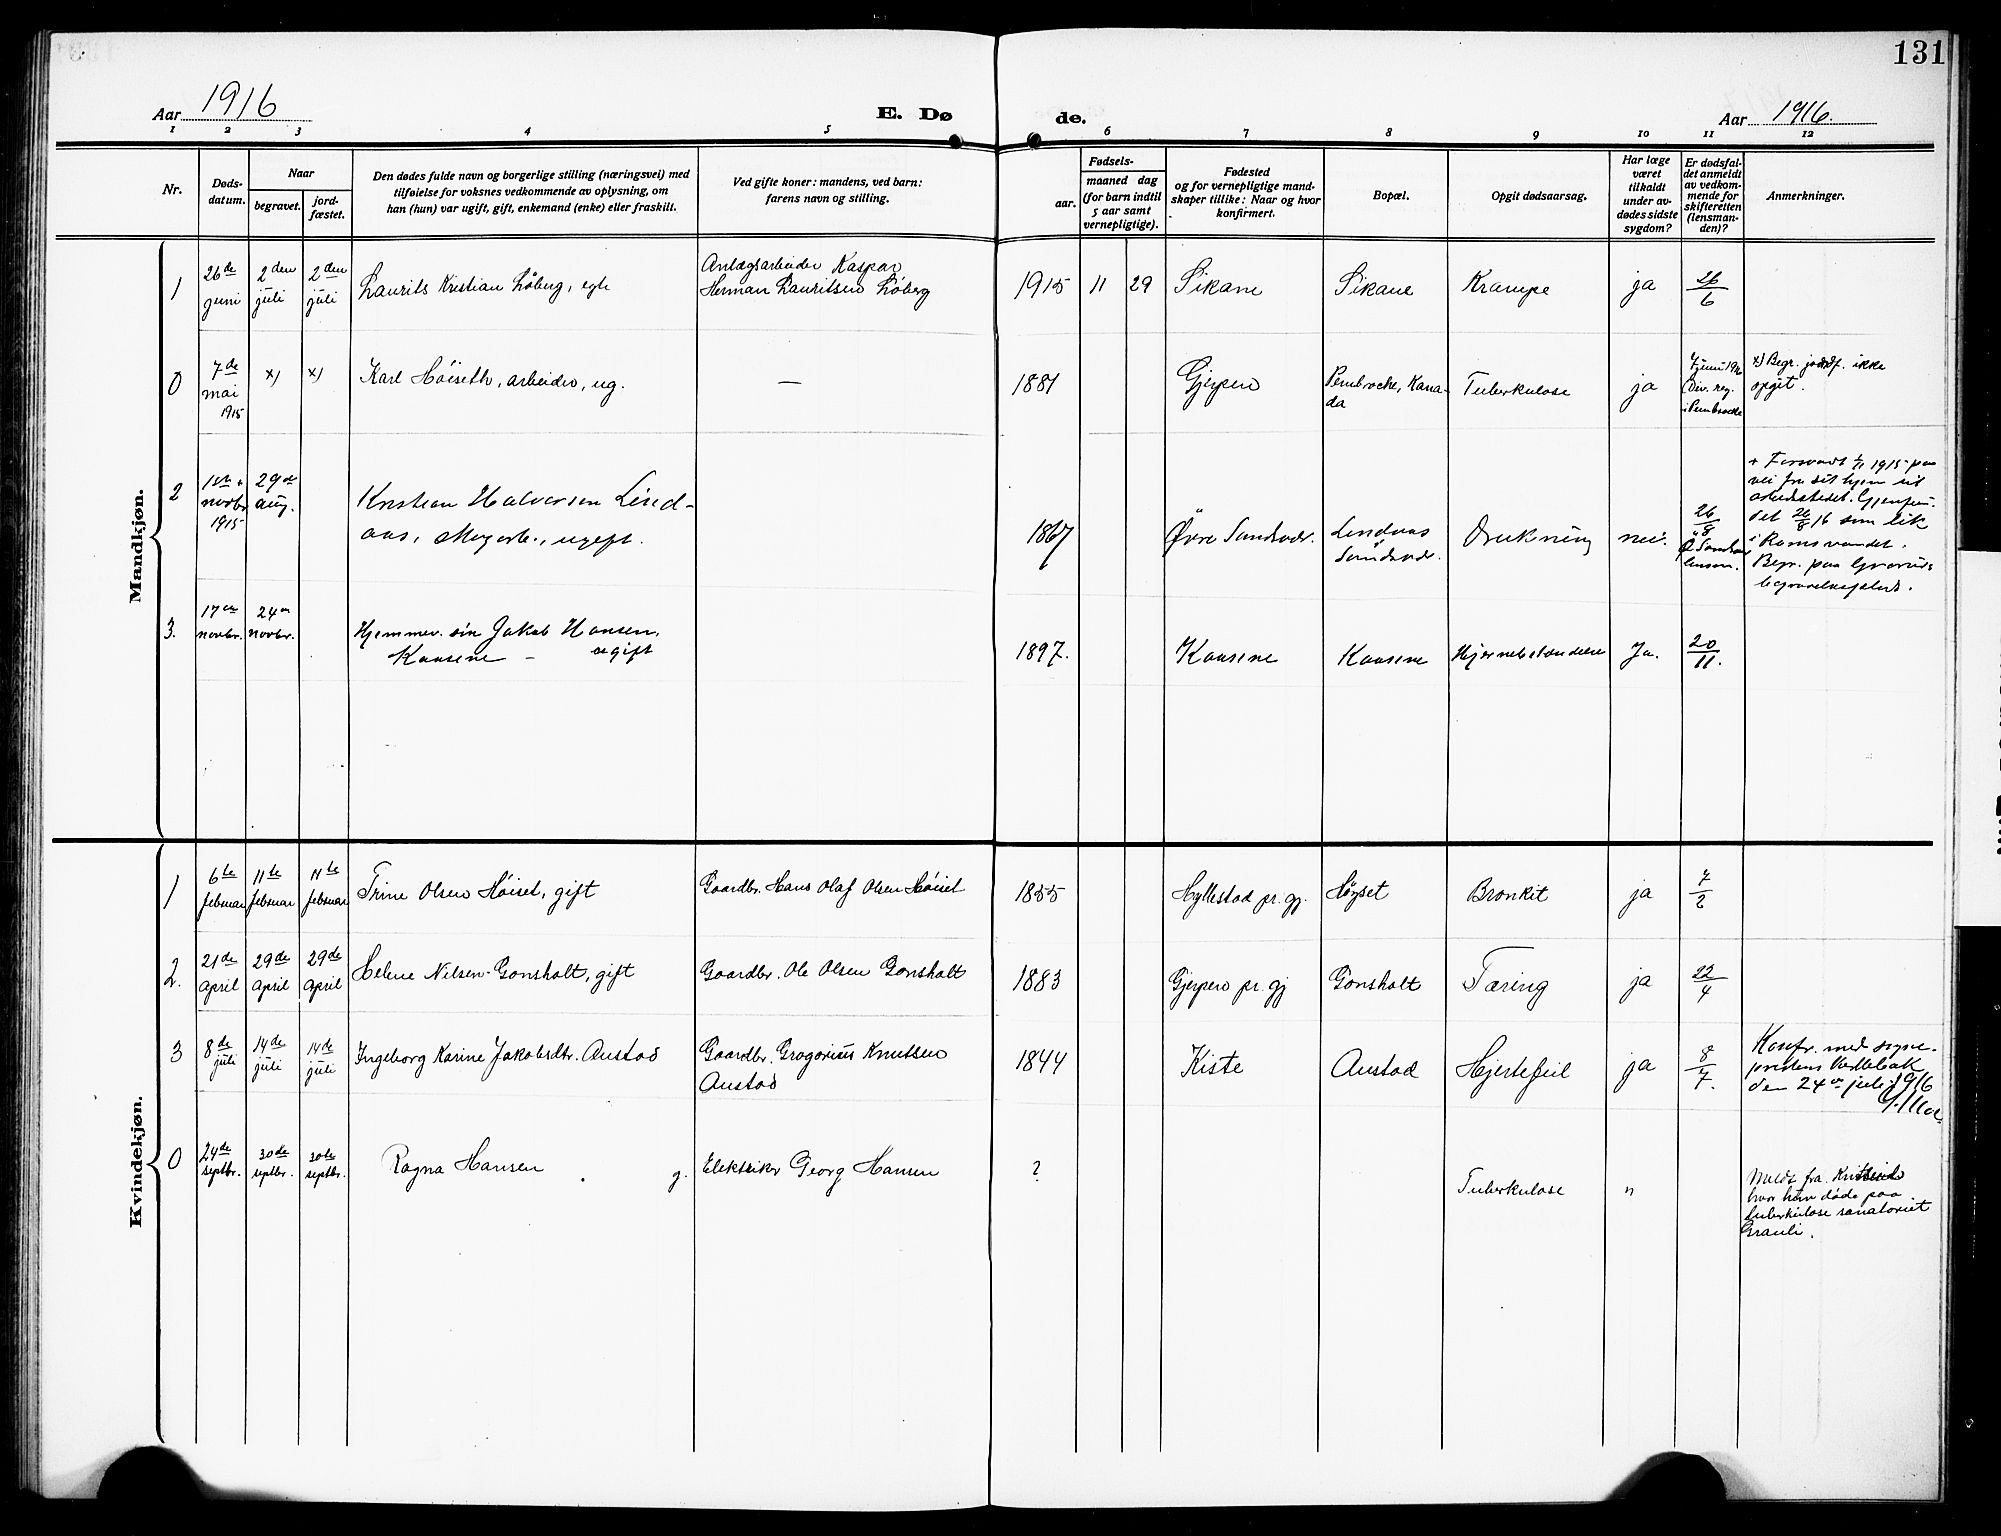 131
Aar 1916
E. Dø
de.
Aar 1916.
1 2 3 4 5 6 7 8 9 10 11 12
Nr.
Døds-
datum.
Naar
begravet.
jord-
fæstet.
Den dødes fulde navn og borgerlige stilling (næringsvei) med
tilføielse for voksnes vedkommende av oplysning, om
han (hun) var ugift, gift, enkemand (enke) eller fraskilt.
Ved gifte koner: mandens, ved barn:
farens navn og stilling.
Fødsels-
aar.
maaned dag
(for barn indtil
5 aar samt
vernepligtige).
Fødested
og for vernepligtige mand-
skaper tillike: Naar og hvor
konfirmert.
Bopæl.
Opgit dødsaarsag.
Har læge
været
tilkaldt
under av-
dødes sidste
sygdom?
Er dødsfal-
det anmeldt
av vedkom-
mende for
skifteretten
(lensman-
den)?
Anmerkninger.
Mandkjøn.
1
26de
juni
2den
juli
2den
juli
Laurits Kristian Løberg, egte
Anlægsarbeider Kaspar
Herman Lauritsen Løberg
1915 11 29
Sikane
Sikane
Krampe
ja
26/6
0
7de
mai
1915
x)
x)
Karl Höiseth, arbeider, ug.
—
1881
Gjerpen
Pembrocke, Kana-
da
Tuberkulose
ja
7 juni 1916
Div. reg.
i Pembrocke
x) Begr. jordf. ikke
opgit.
2
1ste +
novbr
1915
29de
aug.
Kristian Halvorsen Lind-
aas, ugift.
1867
Øvre Sandsvær.
Lindaas
Sandsvær.
Drukning
nei.
26/8
+ Forsvandt 1/11 1915 paa
vei fra sit hjem til
arbeidsstedet. Gjenfun-
det 26/8 16 som lik
i Ramsvandet.
Begr. paa
begravelsesplads.
3.
17de
novbr.
24de
novbr.
Hjemmev. søn Jakob Hansen
Kaasene – ugift
1897.
Kaasene
Kaasene
Hjernebetændelse
Ja.
20/11.
Kvindekjøn.
1
6te
februar
11te
februar
11te
februar
Trine Olsen Höiset, gift
Gaardbr. Hans Olaf Olsen Höiset
1855
Hyllestad pr. gj.
Høyset
Bronkit
ja
7/2
2.
21de
april
29de
april
29de
april
Helene Nilsen Gonsholt, gift
Gaardbr. Ole Olsen Gonsholt
1883
Gjerpen pr. gj
Gonsholt
Tæring
ja
22/4
3
8de
juli
14de
juli
14de
juli
Ingeborg Karine Jakobsdtr. Austad
Gaardbr. Gregorius Knutsen
Austad
1844
Kiste
Austad
Hjertefeil
ja
8/7.
Konfr. med sogne-
prestens
den 24de juli 1916
0
24de
septbr.
30de
septbr.
30te
septbr.
Ragna Hansen g.
Elektriker Georg Hansen
?
Tuberkulose
"
Meldt fra
hvor hun døde paa
tuberkulose sanatoriet
Grauli.